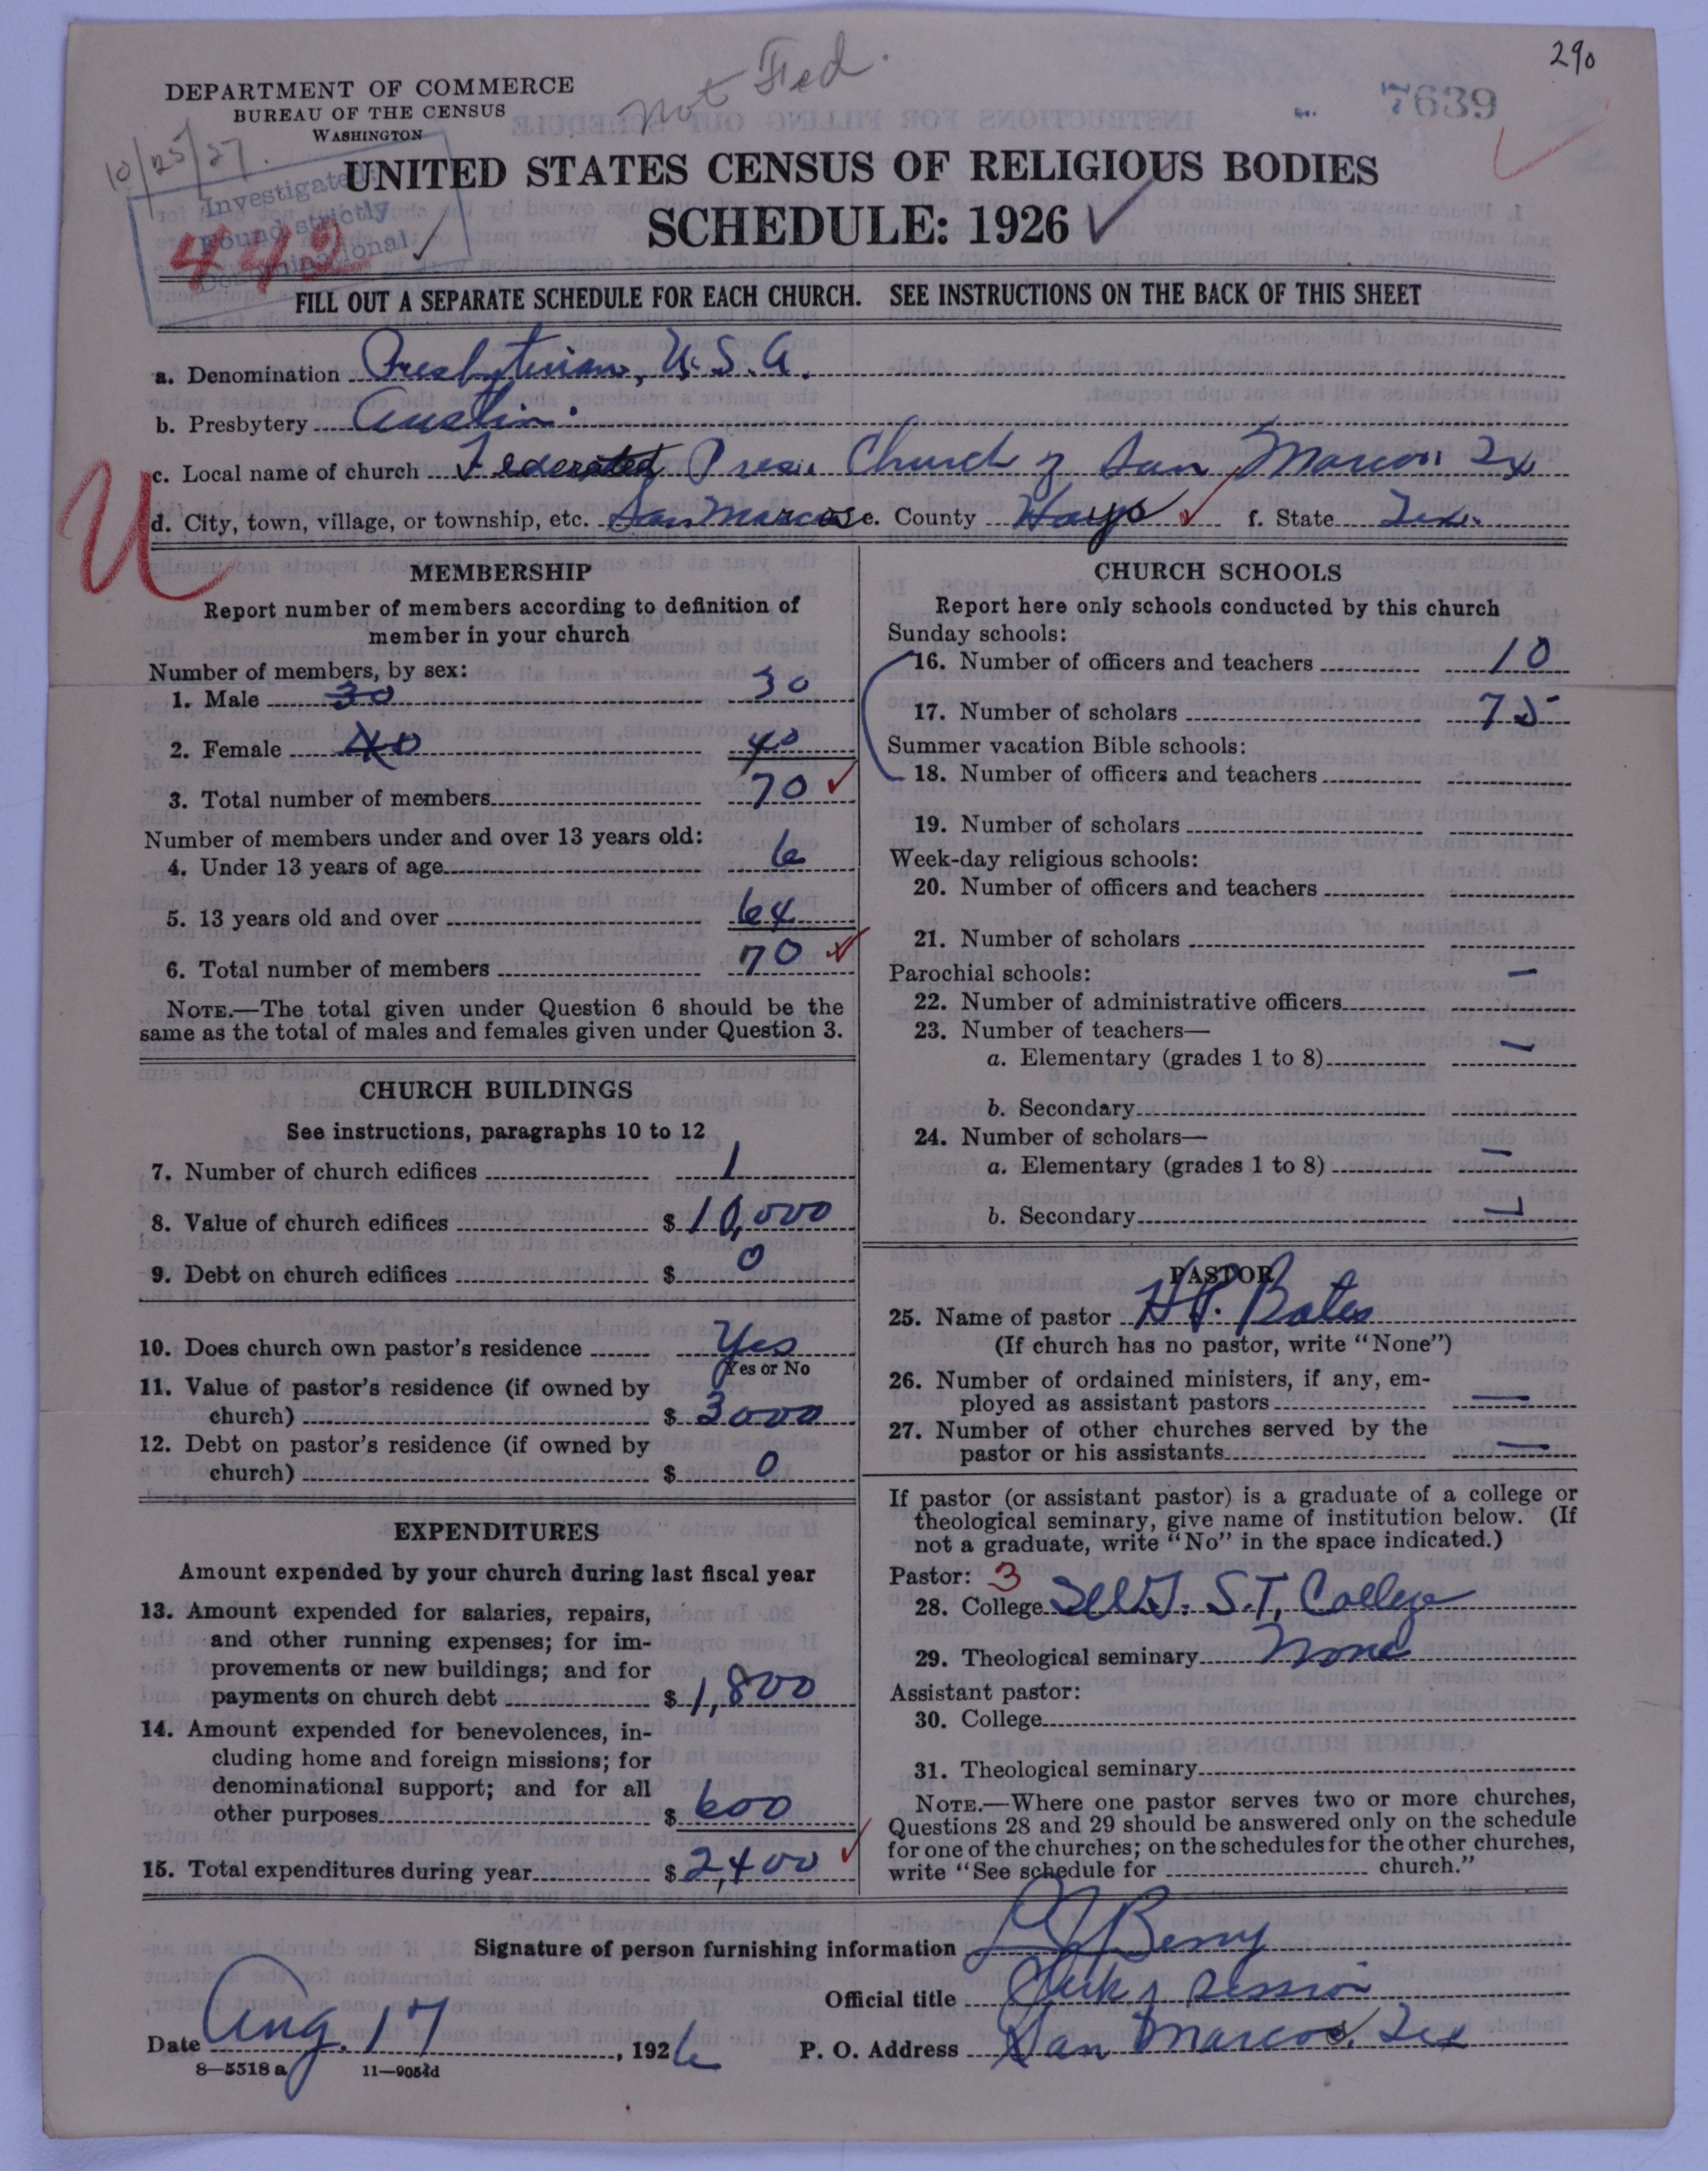 290
Not Fed.
7639
DEPARTMENT OF COMMERCE
BUREAU OF THE CENSUS
WASHINGTON
10/25/27.
Investigated:
Found strictly
Denominational
442
UNITED STATES CENSUS OF RELIGIOUS BODIES
SCHEDULE: 1926
FILL OUT A SEPARATE SCHEDULE FOR EACH CHURCH. SEE INSTRUCTIONS ON THE BACK OF THIS SHEET
a. Denomination Presbyterian, U.S.A.
b. Presbytery Austin
c. Local name of church Federated Pres. Church of San Marcos Tx
U
d. City, town, village, or township, etc. San Marcos e. County Hays f. State Tex.
MEMBERSHIP
Report number of members according to definition of
member in your church
Number of members, by sex:
1. Male 30 30
2. Female 40 40
3. Total number of members 70
Number of members under and over 13 years old:
4. Under 13 years of age 6
5. 13 years old and over 64
6. Total number of members 70
NOTE.—The total given under Question 6 should be the
same as the total of males and females given under Question 3.
CHURCH BUILDINGS
See instructions, paragraphs 10 to 12
7. Number of church edifices 1
8. Value of church edifices $ 10,000
9. Debt on church edifices $ 0
10. Does church own pastor's residence Yes
Yes or No
11. Value of pastor's residence (if owned by
church) $ 3000
12. Debt on pastor's residence (if owned by
church) $ 0
EXPENDITURES
Amount expended by your church during last fiscal year
13. Amount expended for salaries, repairs,
and other running expenses; for im-
provements or new buildings; and for
payments on church debt $ 1,800
14. Amount expended for benevolences, in-
cluding home and foreign missions; for
denominational support; and for all
other purposes $ 600
15. Total expenditures during year $ 2,400
CHURCH SCHOOLS
Report here only schools conducted by this church
Sunday schools:
16. Number of officers and teachers 10
17. Number of scholars 75
Summer vacation Bible schools:
18. Number of officers and teachers
19. Number of scholars
Week-day religious schools:
20. Number of officers and teachers
21. Number of scholars
Parochial schools:
22. Number of administrative officers —
23. Number of teachers—
a. Elementary (grades 1 to 8) —
b. Secondary
24. Number of scholars—
a. Elementary (grades 1 to 8) —
b. Secondary —
PASTOR
25. Name of pastor H.P. Bates
(If church has no pastor, write "None")
26. Number of ordained ministers, if any, em-
ployed as assistant pastors —
27. Number of other churches served by the
pastor or his assistants —
If pastor (or assistant pastor) is a graduate of a college or
theological seminary, give name of institution below. (If
not a graduate, write "No" in the space indicated.)
Pastor: 3
28. College S.T. College
29. Theological seminary None
Assistant pastor:
30. College
31. Theological seminary
NOTE.—Where one pastor serves two or more churches,
Questions 28 and 29 should be answered only on the schedule
for one of the churches; on the schedules for the other churches,
write "See schedule for church."
Signature of person furnishing information Berry
Official title Clerk of Session
Date Aug. 17, 1926 P. O. Address San Marcos, Tex
8—5518 a 11—9051d